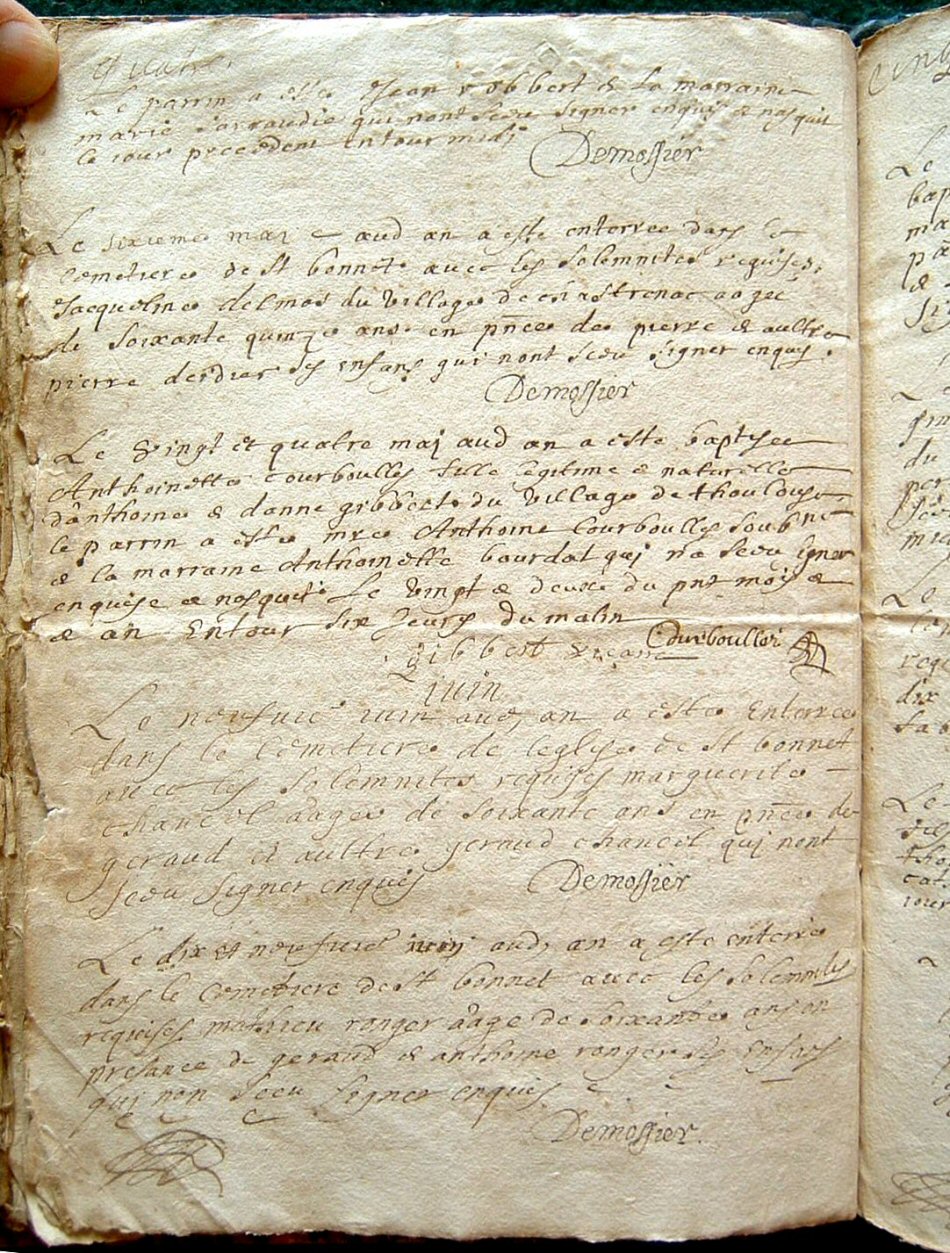 quatre
Le parrin a este Jean robbert & la marraine
marie qui nont sceu signer enquis & nasquit
le jour precedent entour midj
Demossier
Le sixieme maj aud an a este enterree dans le
Cemetiere de St bonnet avec les solemnites requises
Jacqueline delmas du village de aagee
de soixante quinze ans en pnce de pierre & aultre
pierre ses enfans qui nont sceu signer enquis
Demossier
Le vingt et quatre maj aud an a este baptisee
Anthoinette Courboulles fille legitime & naturelle
danthoine & danne gibbert du village de thoulouse
le parrin a este Anthoine Courboulles soubne
& la marraine Anthoinette bourdat qui na sceu signer
enquise & nasquit Le vingt & deuxe du pnt mois &
& an Entour six heures du matin
Courboulles
gibbert vicaire
juin
Le neufvie juin aud an a este Enterree
dans le Cemetiere de leglise de St bonnet
avec les solemnites requises marguerite
chancel aagee de soixante ans en pnce de
geraud et aultre geraud chancel qui nont
sceu signer enquis Demossier
Le dix et neufvie juin aud an a este enterre
dans le Cemetiere de St bonnet avec les solemnites
requises mathieu ronger aage de soixante ans en
presance de geraud & anthoine ronger ses Enfans
qui non sceu signer enquis
Demossier